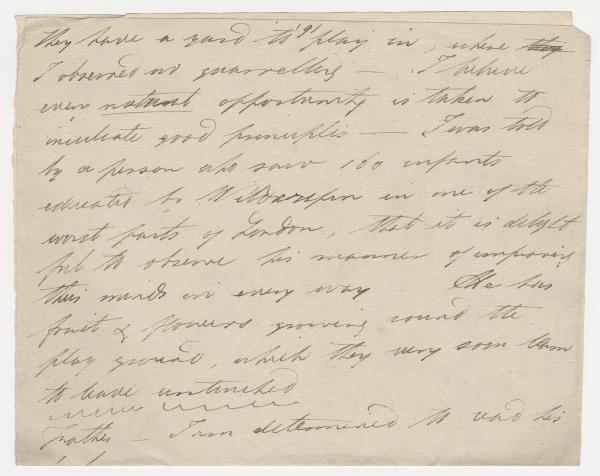 they have a yard to play in, where they
I observed no quarrelling — I believe
every natural opportunity is taken to
inculcate good principles — I was told
by a person who saw 160 infants
educated by Wilderspin in one of the
worst parts of London, that it is delight
ful to observe his manner of improving
their minds in every way — He has
fruit & flowers growing round the
play ground, which they very soon learn
to leave untouched
— I am determined to read his